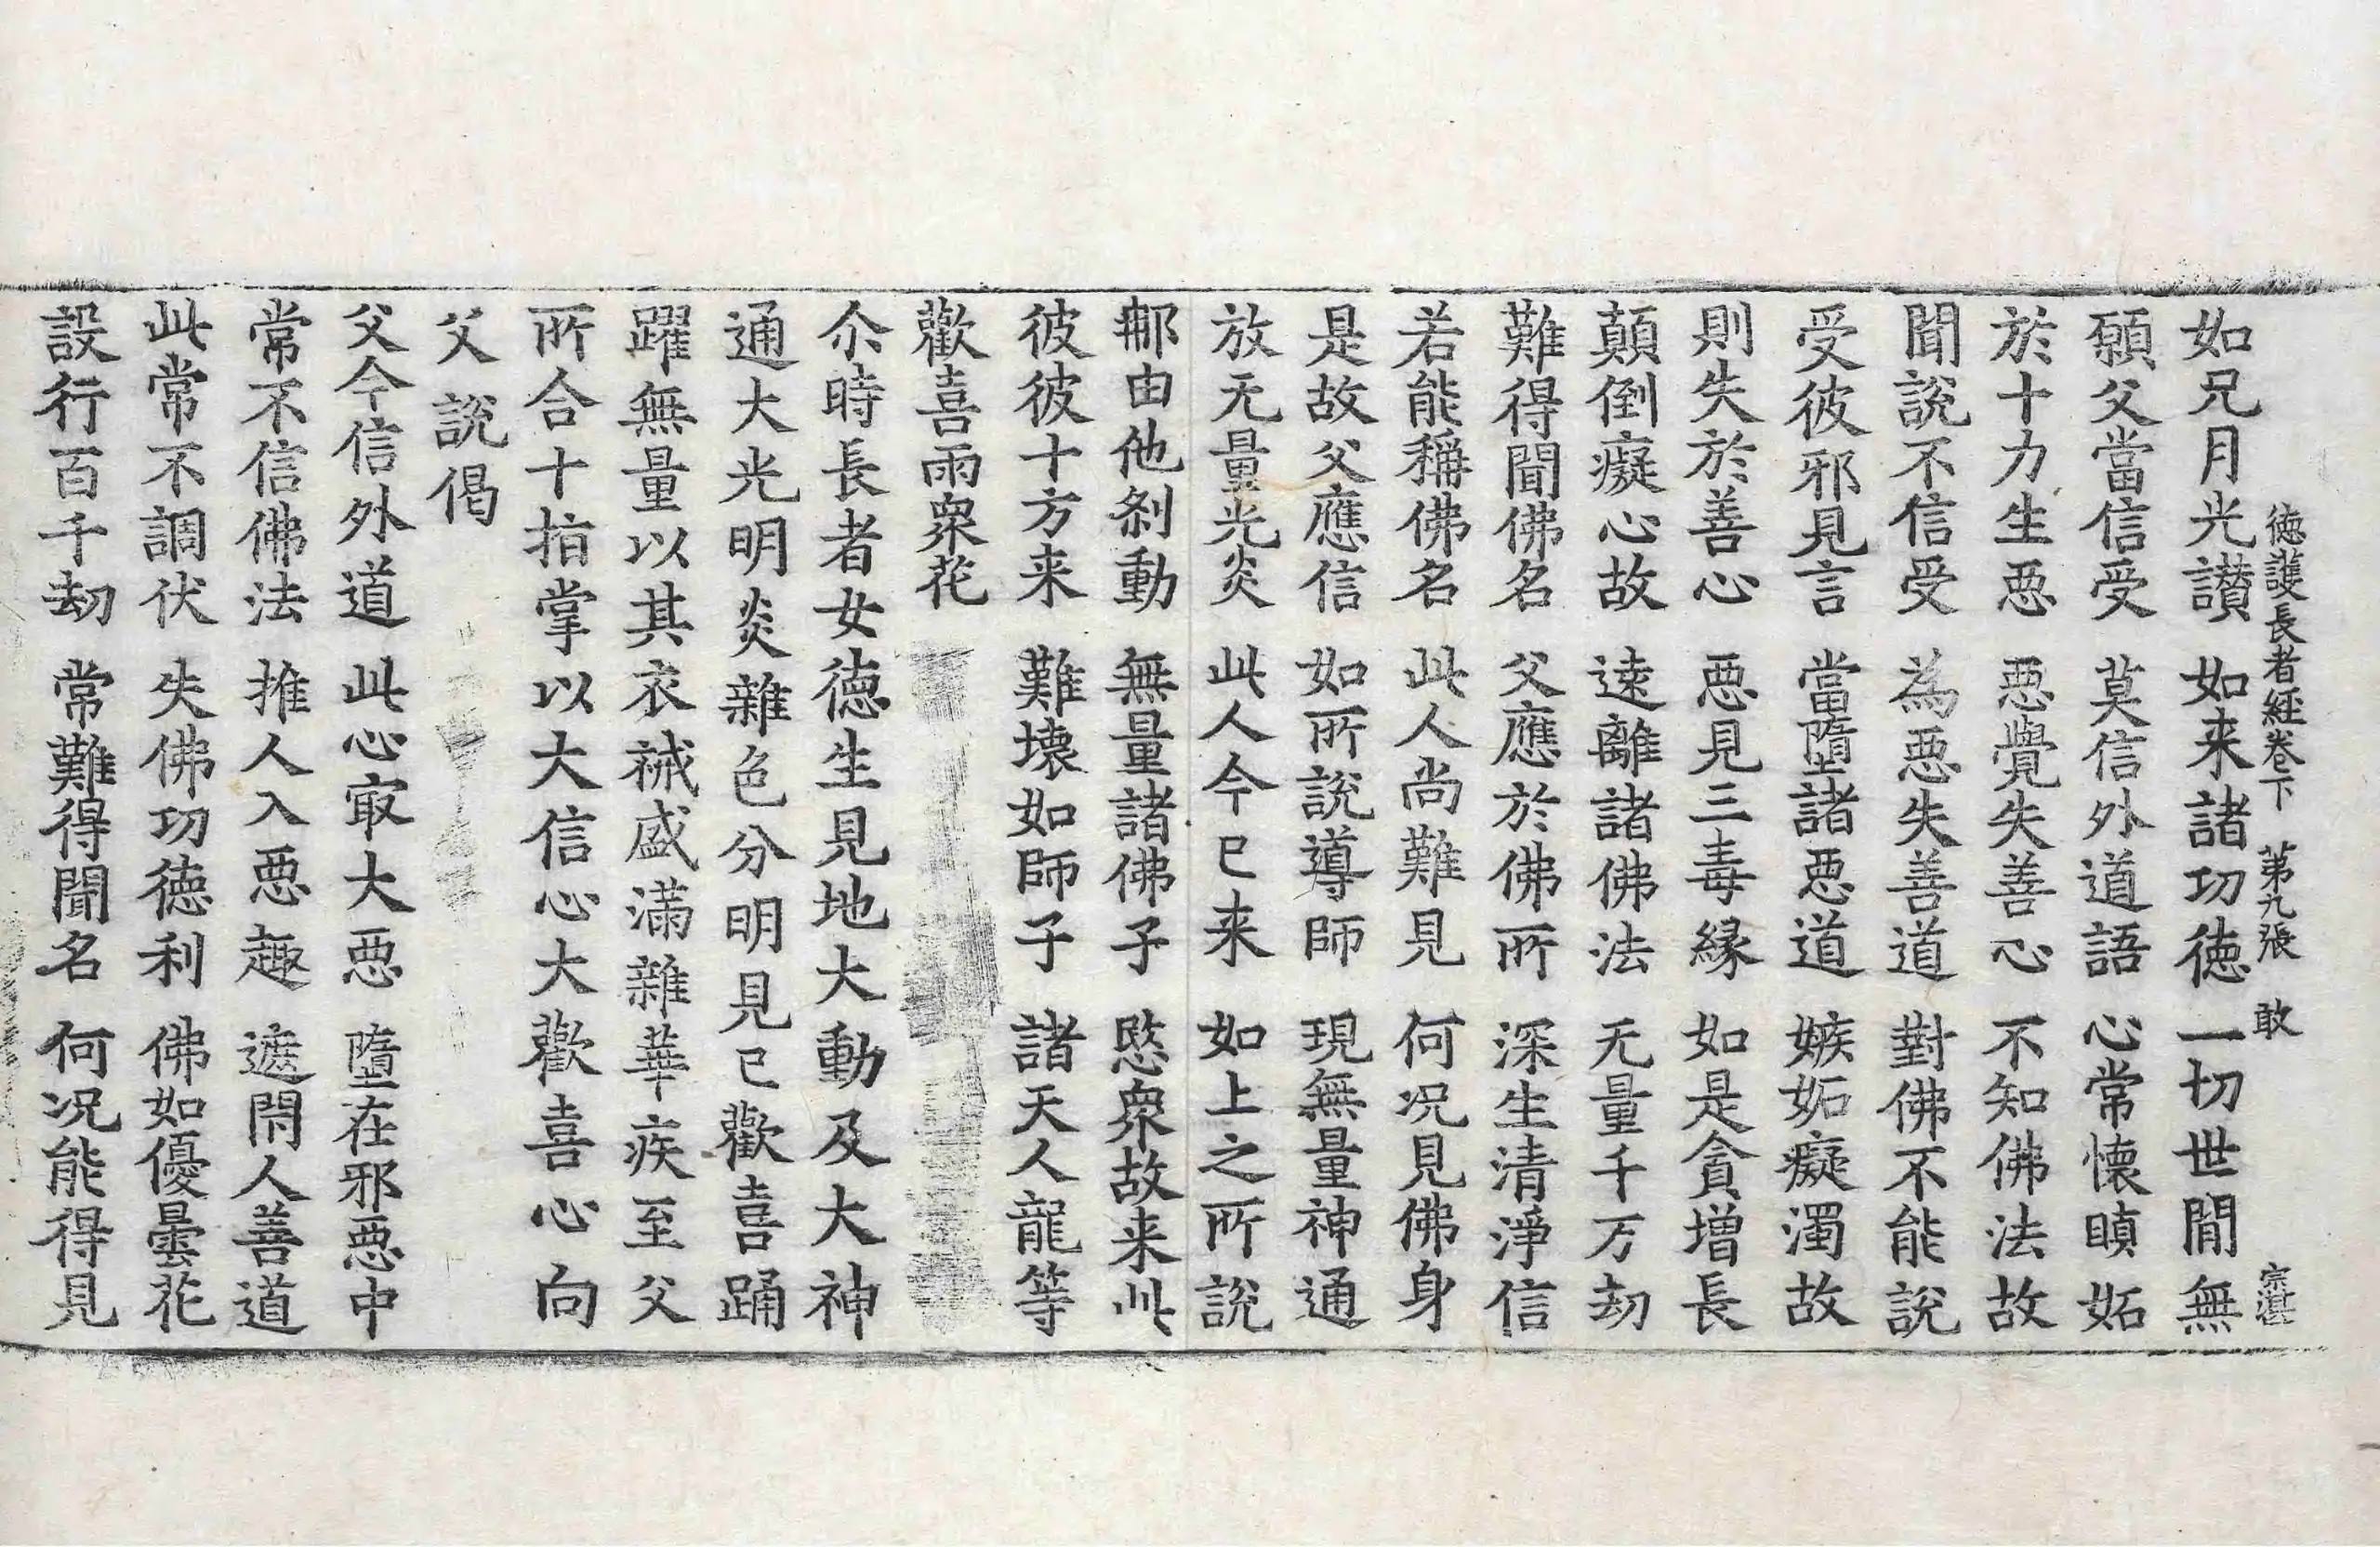 德護長者經卷下　第九張　敢　宗湛
如兄月光讃　如来諸功德　一切世間無
願父當信受　莫信外道語　心常懷瞋妬
於十力生惡　惡覺失善心　不知佛法故
聞說不信受　為惡失善道　對佛不能說
受彼邪見言　當墮諸惡道　嫉妬癡濁故
則失於善心　惡見三毒縁　如是貪增長
顛倒癡心故　遠離諸佛法　无量千万劫
難得聞佛名　父應於佛所　深生清淨信
若能稱佛名　此人尚難見　何况見佛身
是故父應信　如所說導師　現無量神通
放无量光炎　此人今已来　如上之所說
那由他剎動　無量諸佛子　愍衆故来此
彼彼十方来　難壞如師子　諸天人龍等
歡喜雨衆花
尒時長者女德生見地大動及大神
通大光明炎雜色分明見已歡喜踊
躍無量以其衣裓盛滿雜華疾至父
所合十指掌以大信心大歡喜心向
父說偈
父今信外道　此心㝡大惡　墮在邪惡中
常不信佛法　推人入惡趣　遮閇人善道
此常不調伏　失佛功德利　佛如優曇花
設行百千劫　常難得聞名　何况能得見